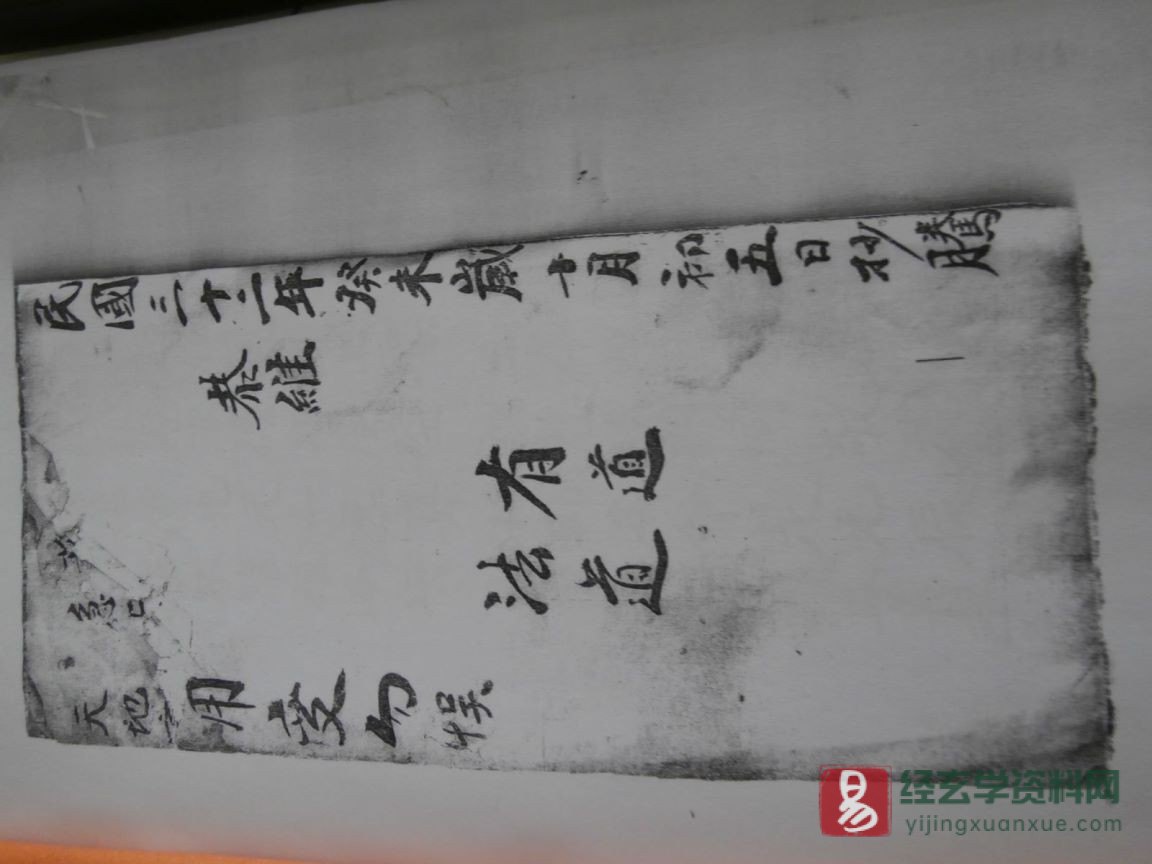 民國三十二年癸未歲十月初五日抄騰
恭維
有道
法道
天地用度勿悞
易 经玄学资料网
yijingxuanxue.com